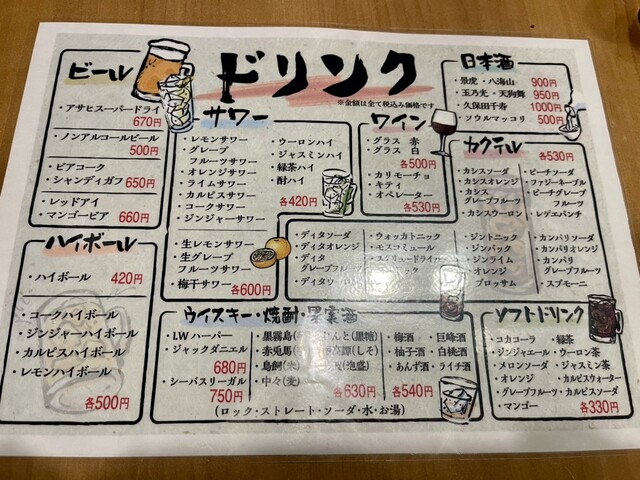 ドリンク
※金額は全て税込み価格です
ビール
・アサヒスーパードライ
670円
・ノンアルコールビール
500円
・ビアコーク
・シャンディガフ 650円
・レッドアイ
・マンゴービア 660円
ハイボール
・ハイボール 420円
・コークハイボール
・ジンジャーハイボール
・カルピスハイボール
・レモンハイボール
各500円
サワー
・レモンサワー
・グレープ
フルーツサワー
・オレンジサワー
・ライムサワー
・カルピスサワー
・コークサワー
・ジンジャーサワー
・ウーロンハイ
・ジャスミンハイ
・緑茶ハイ
・酎ハイ
各420円
・生レモンサワー
・生グレープ
フルーツサワー
・梅干サワー 各600円
ワイン
・グラス 赤
・グラス 白
各500円
・カリモーチョ
・キティ
・オペレーター
各530円
日本酒
・景虎・八海山 900円
・玉乃光・天狗舞 950円
・久保田千寿 1000円
・ソウルマッコリ 500円
カクテル
各530円
・カシスソーダ
・カシスオレンジ
・カシス
グレープフルーツ
・カシスウーロン
・ピーチソーダ
・ファジーネーブル
・ピーチグレープ
フルーツ
・レゲエパンチ
・ディタソーダ
・ディタオレンジ
・ディタ
グレープフルーツ
・ウォッカトニック
・モスコミュール
・スクリュードライバー
・ジントニック
・ジンバック
・ジンライム
・オレンジ
ブロッサム
・カンパリソーダ
・カンパリオレンジ
・カンパリ
グレープフルーツ
・スプモーニ
ウイスキー・焼酎・果実酒
・I.Wハーパー
・ジャックダニエル
680円
・シーバスリーガル
750円
・黒霧島
・赤兎馬
・鳥飼(米)
・中々(麦)
(黒糖)
(しそ)
(泡盛)
各630円
・梅酒
・柚子酒
・あんず酒
・巨峰酒
・白桃酒
・ライチ酒
各540円
(ロック・ストレート・ソーダ・水・お湯)
ソフトドリンク
・コカコーラ
・ジンジャエール
・メロンソーダ
・オレンジ
・グレープフルーツ
・マンゴー
・緑茶
・ウーロン茶
・ジャスミン茶
・カルピスウォーター
・カルピスソーダ
各330円